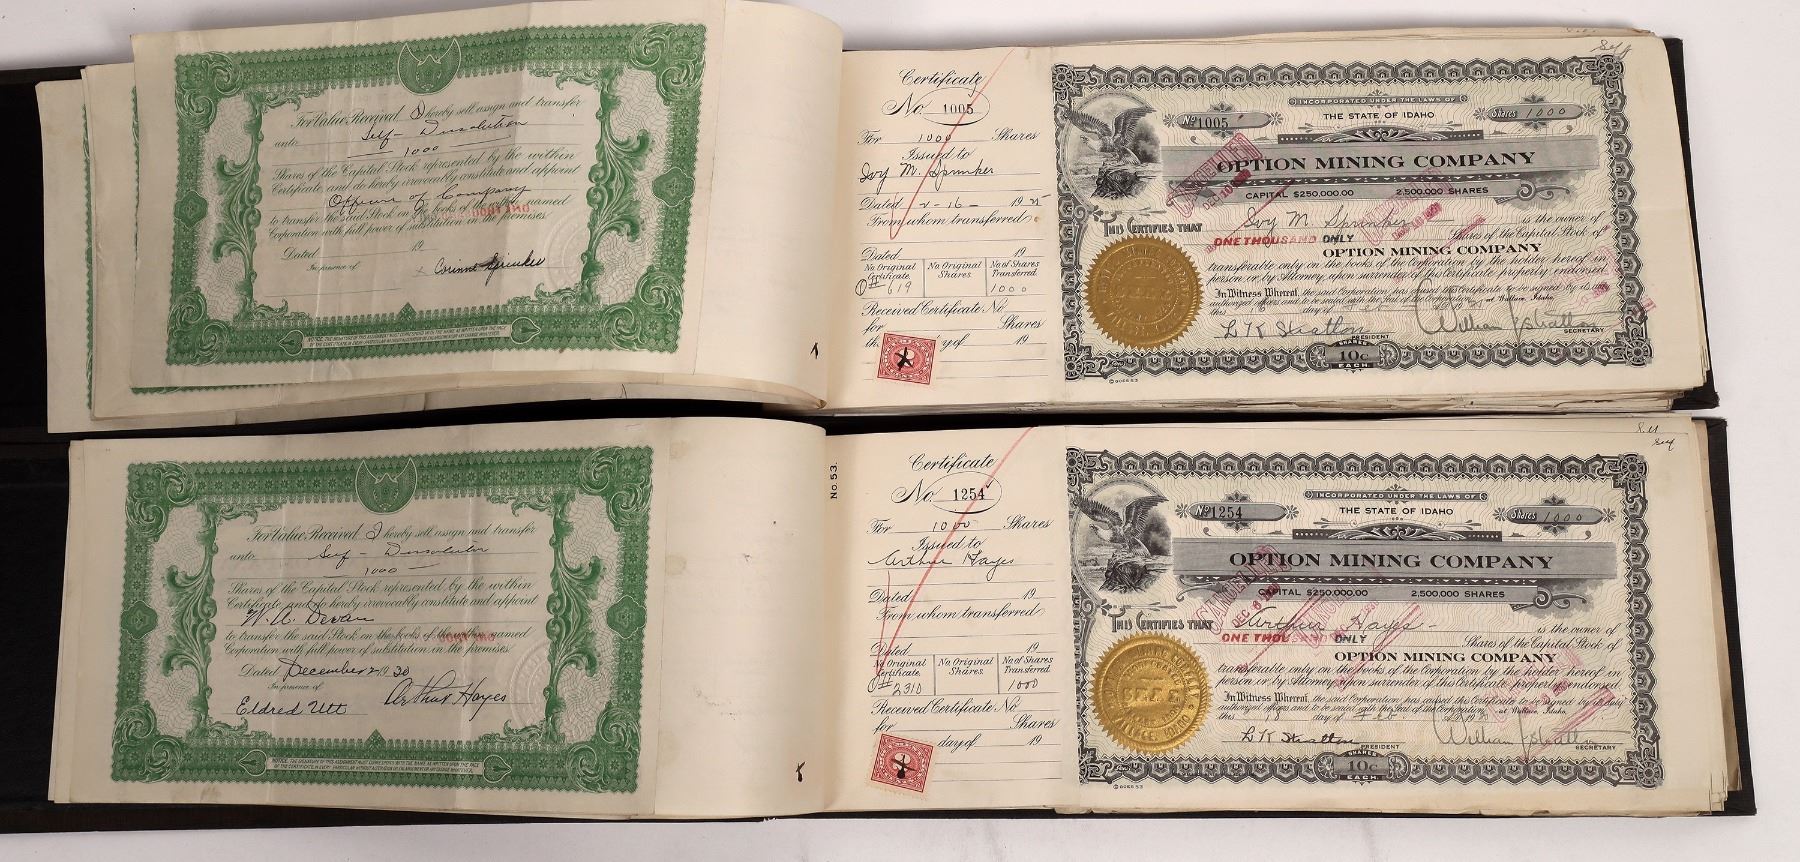 For Value Received, I hereby sell, assign and transfer
unto Self - Dissolution
1000
Shares of the Capital Stock represented by the within
Certificate and do hereby irrevocably constitute and appoint
Officers of Company
to transfer the said Stock on the books of the within named
Corporation with full power of substitution in the premises.
Dated 19
In presence of
x Corinne Sprinker
NOTICE. THE SIGNATURE OF THIS ASSIGNMENT MUST CORRESPOND WITH THE NAME AS WRITTEN UPON THE FACE
OF THE CERTIFICATE, IN EVERY PARTICULAR, WITHOUT ALTERATION OR ENLARGEMENT, OR ANY CHANGE WHATEVER.
Certificate
No. 1005
For 1000 Shares
Issued to
Ivy M. Sprinker
Dated 2-16- 1925
From whom transferred
Dated 19
No. Original Certificate. No. Original Shares. No. of Shares Transferred.
O# 619 1000
Received Certificate No
for Shares
day of 19
INCORPORATED UNDER THE LAWS OF
THE STATE OF IDAHO
No 1005
Shares 1000
OPTION MINING COMPANY
CAPITAL $250,000.00 2,500,000 SHARES
CANCELLED
THIS CERTIFIES THAT Ivy M Sprinker is the owner of
ONE THOUSAND ONLY Shares of the Capital Stock of
OPTION MINING COMPANY
transferable only on the books of the Corporation by the holder hereof in
person or by Attorney upon surrender of this Certificate properly endorsed.
In Witness Whereof, the said Corporation has caused this Certificate to be signed by its duly
authorized officers and to be sealed with the Seal of the Corporation, at Wallace, Idaho,
this 16 day of Feb
L K Stratton PRESIDENT
William J Stratton SECRETARY
SHARES
10c
EACH
For Value Received, I hereby sell, assign and transfer
unto Self - Dissolution
1000
Shares of the Capital Stock represented by the within
Certificate and do hereby irrevocably constitute and appoint
W. A. Devan
to transfer the said Stock on the books of the within named
Corporation with full power of substitution in the premises.
Dated December 2 1930
In presence of
Eldred Utt
Arthur Hayes
NOTICE. THE SIGNATURE OF THIS ASSIGNMENT MUST CORRESPOND WITH THE NAME AS WRITTEN UPON THE FACE
OF THE CERTIFICATE, IN EVERY PARTICULAR, WITHOUT ALTERATION OR ENLARGEMENT, OR ANY CHANGE WHATEVER.
No. 53.
Certificate
No. 1254
For 1000 Shares
Issued to
Arthur Hayes
Dated 19
From whom transferred
Dated 19
No. Original Certificate. No. Original Shares. No. of Shares Transferred.
O# 2310 1000
Received Certificate No
for Shares
day of 19
INCORPORATED UNDER THE LAWS OF
THE STATE OF IDAHO
No 1254
Shares 1000
OPTION MINING COMPANY
CAPITAL $250,000.00 2,500,000 SHARES
CANCELLED
THIS CERTIFIES THAT Arthur Hayes - is the owner of
ONE THOUSAND ONLY Shares of the Capital Stock of
OPTION MINING COMPANY
transferable only on the books of the Corporation by the holder hereof in
person or by Attorney upon surrender of this Certificate properly endorsed.
In Witness Whereof, the said Corporation has caused this Certificate to be signed by its duly
authorized officers and to be sealed with the Seal of the Corporation, at Wallace, Idaho,
this 18 day of Feb.
L K Stratton PRESIDENT
William J Stratton SECRETARY
SHARES
10c
EACH